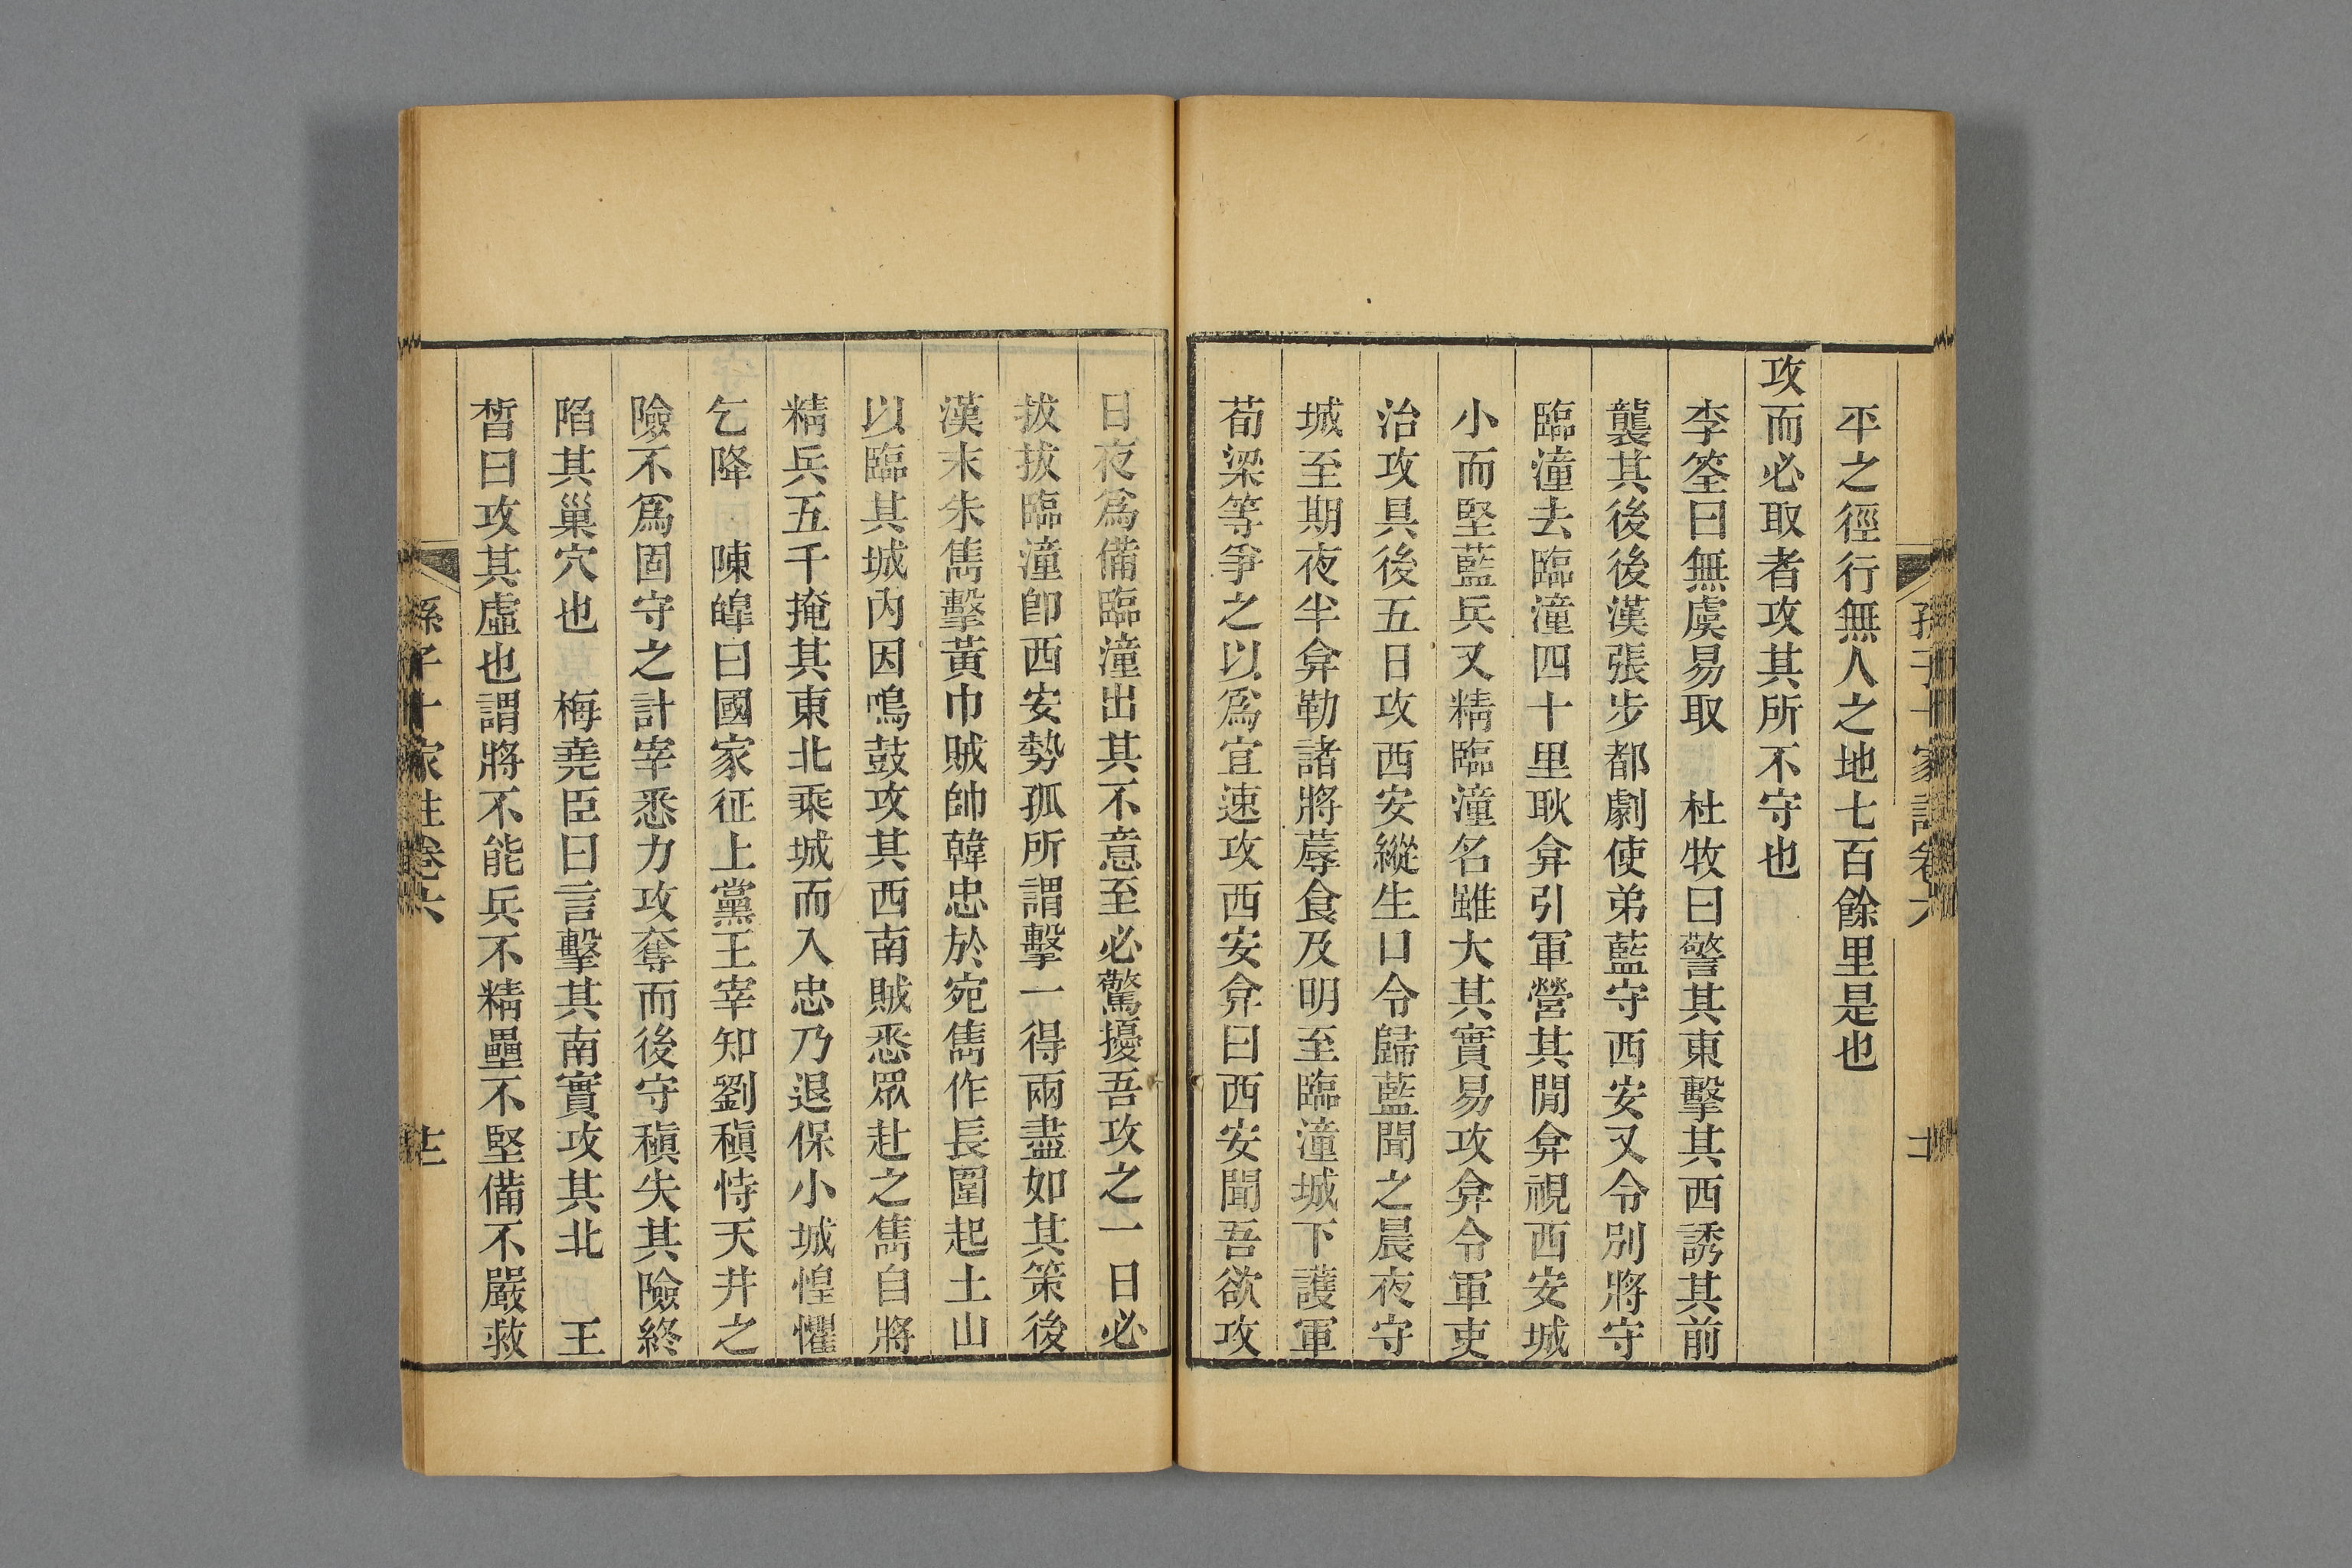 平之徑行無人之地七百餘里是也
攻而必取者攻其所不守也
李筌曰無虞易取　杜牧曰警其東擊其西誘其前
襲其後後漢張步都劇使弟藍守西安又令別將守
臨潼去臨潼四十里耿弇引軍營其閒弇視西安城
小而堅藍兵又精臨潼名雖大其實易攻弇令軍吏
治攻具後五日攻西安縱生口令歸藍聞之晨夜守
城至期夜半弇勒諸將蓐食及明至臨潼城下護軍
荀梁等爭之以爲宜速攻西安弇曰西安聞吾欲攻
日夜爲備臨潼出其不意至必驚擾吾攻之一日必
拔拔臨潼卽西安勢孤所謂擊一得兩盡如其策後
漢末朱雋擊黃巾賊帥韓忠於宛雋作長圍起土山
以臨其城內因鳴鼓攻其西南賊悉眾赴之雋自將
精兵五千掩其東北乘城而入忠乃退保小城惶懼
乞降　陳皞曰國家征上黨王宰知劉稹恃天井之
險不爲固守之計宰悉力攻奪而後守稹失其險終
陷其巢穴也　梅堯臣曰言擊其南實攻其北　王
晳曰攻其虛也謂將不能兵不精壘不堅備不嚴救
孫子十家註卷六